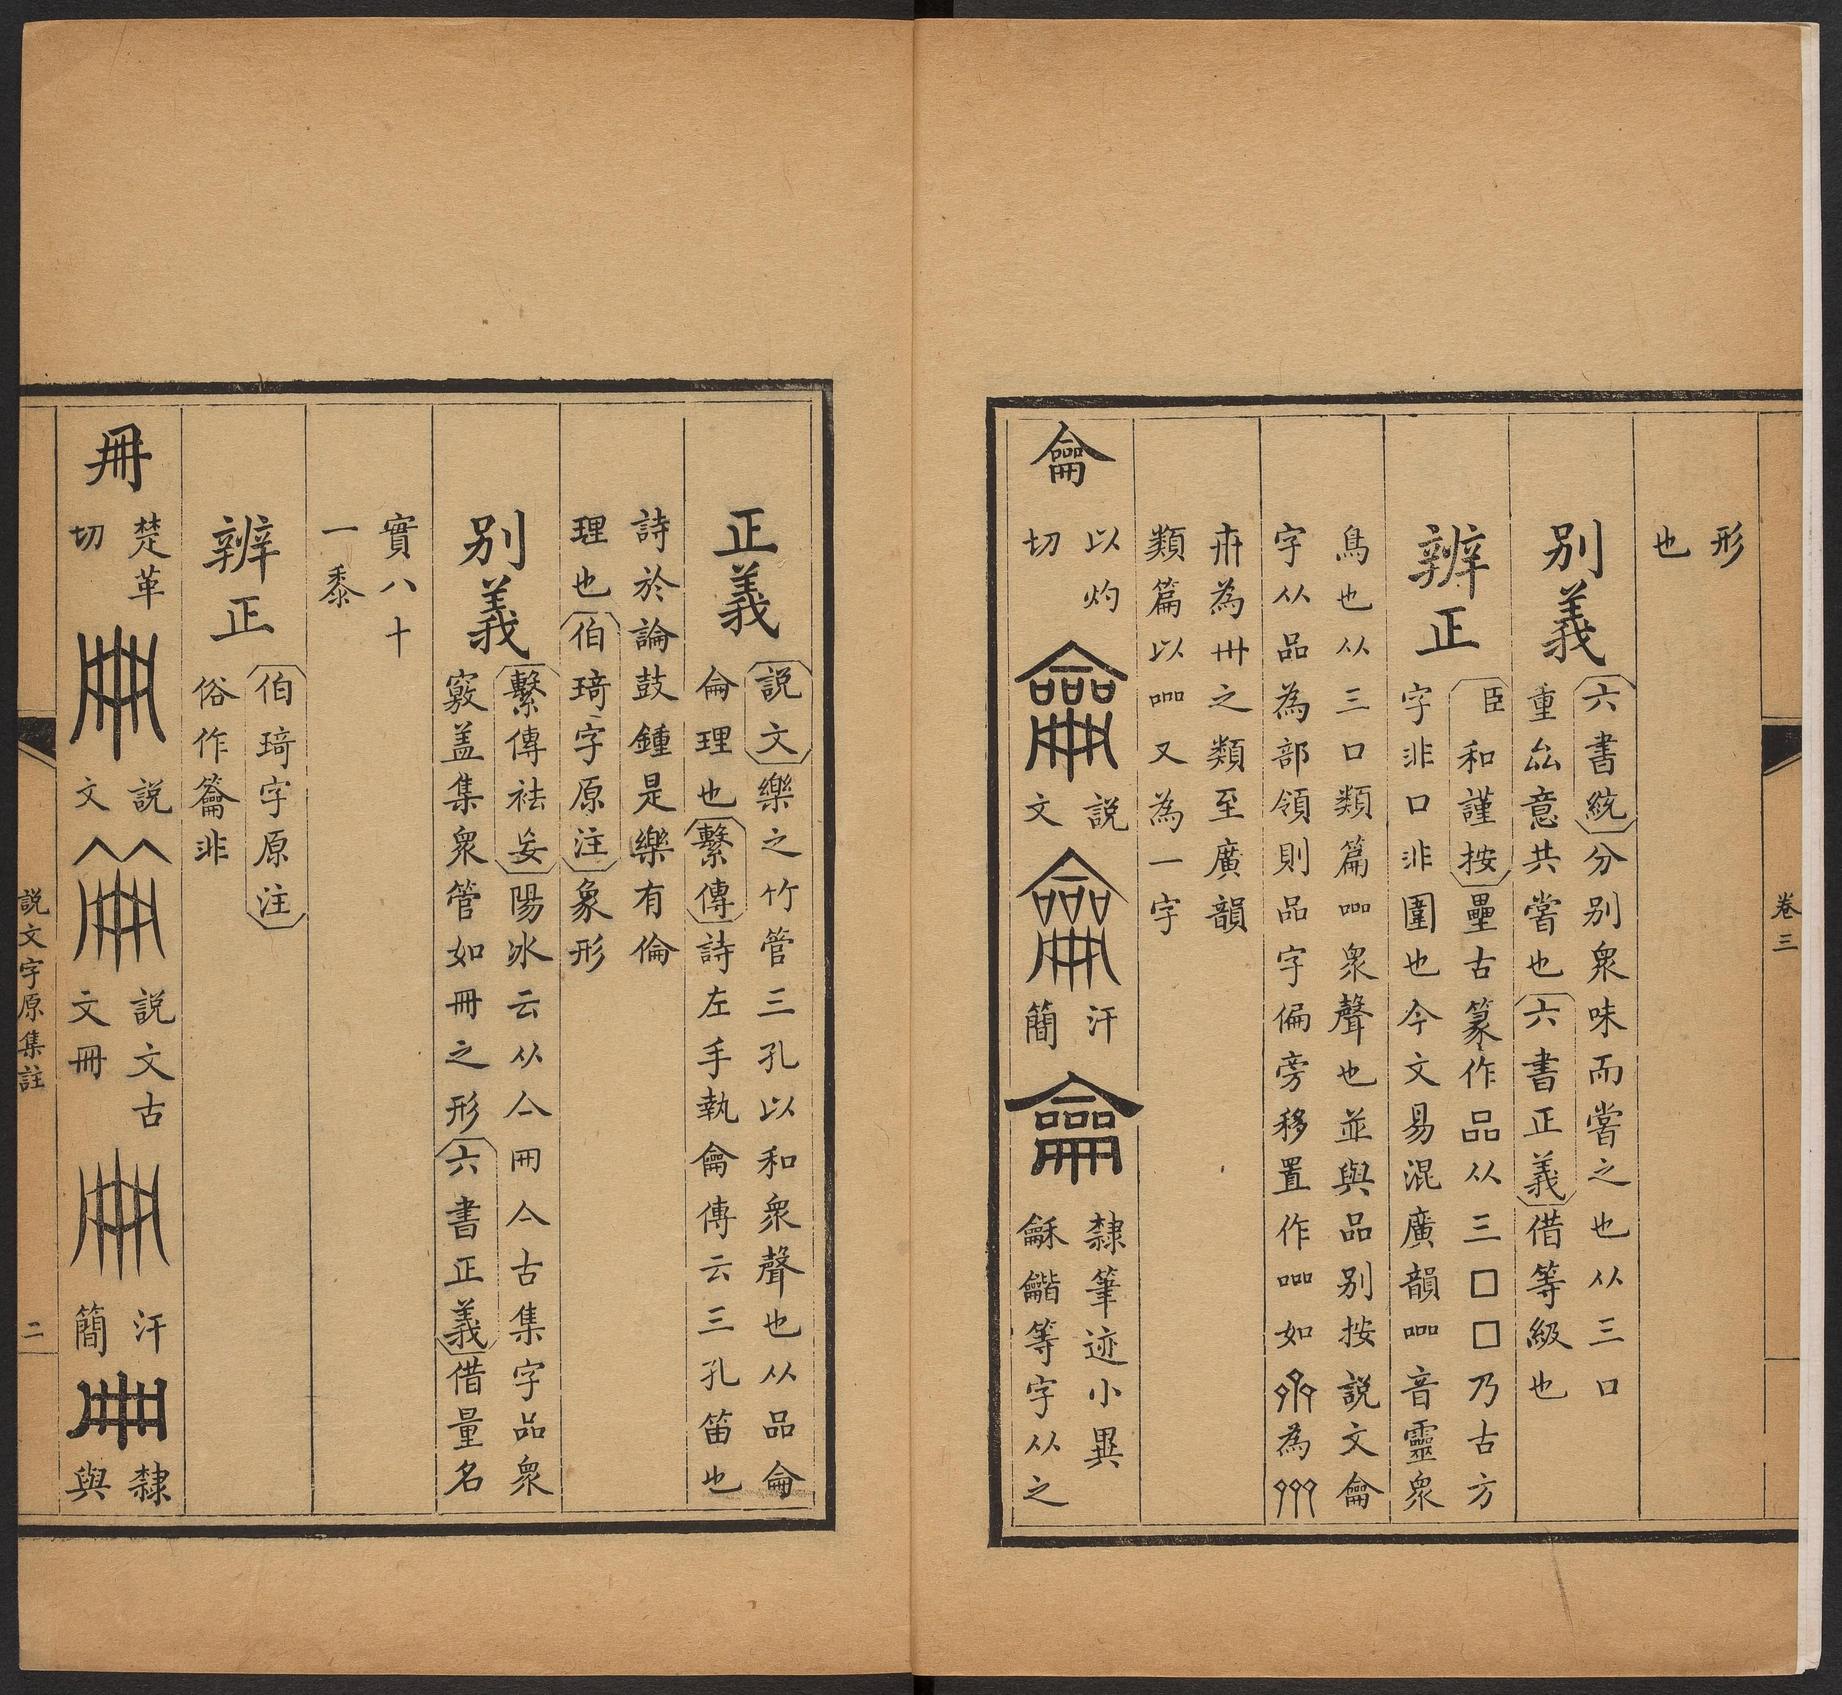 卷三
形
也
別義
六書統分別衆味而嘗之也从三口
重厽意共嘗也六書正義借等級也
辨正
臣和謹按壘古篆作品从三囗囗乃古方
字非口非圍也今文易混廣韻吅音靈衆
鳥也从三口類篇衆聲也並與品別按說文龠
字从品為部領則品字偏旁移置作如為
𠕋為卌之類至廣韻
類篇以又為一字
龠
以灼
切
說
文
汗
簡
隸筆迹小異
龢龤等字从之
正義
說文樂之竹管三孔以和衆聲也从品侖
侖理也繫傳詩左手執龠傳云三孔笛也
詩於論鼓鍾是樂有倫
理也伯琦字原注象形
別義
繫傳袪妄陽冰云从亼冊亼古集字品衆
竅盖集衆管如冊之形六書正義借量名
實八十
一黍
辨正
伯琦字原注
俗作籥非
冊
楚革
切
說
文
說文古
文冊
汗
簡
隸
與
說文字原集註
二